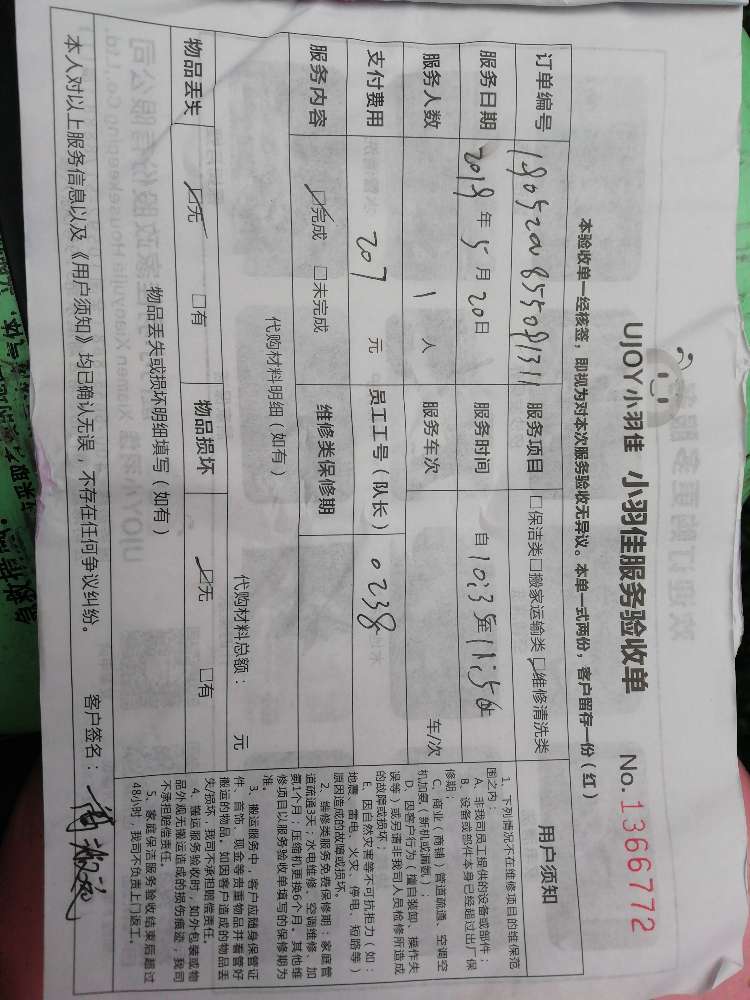 UJOY小羽佳 小羽佳服务验收单 No.1366772
本验收单一经核签，即视为对本次服务验收无异议。本单一式两份，客户留存一份（红）
订单编号 服务项目 □保洁类□搬家运输类☑维修清洗类
服务日期 2018年5月20日 服务时间 自10:35至11:50
服务人数 1 人 服务车次 车/次
支付费用 207 元 员工工号（队长） 0238
服务内容 ☑完成 □未完成 维修类保修期
代购材料明细（如有） 代购材料总额： 元
物品丢失 ☑无 □有 物品损坏 ☑无 □有
物品丢失或损坏明细填写（如有）
本人对以上服务信息以及《用户须知》均已确认无误，不存在任何争议纠纷。 客户签名：
用户须知
1、下列情况不在维修项目的维保范
围之内：
A、非我司员工提供的设备或部件；
B、设备或部件本身已经超过出厂保
修期；
C、商业（商铺）管道疏通、空调空
机加氟（新机或漏氟）；
D、因客户行为（擅自装卸、操作失
误等）或另请非我司人员检修所造成
的故障或损坏；
E、因自然灾害等不可抗拒力（如：
地震、雷电、火灾、停电、短路等）
原因造成的故障或损坏。
2、维修类服务免费保修期：家庭管
道疏通3天；水电维修、空调维修、加
氟1个月；压缩机更换6个月。其他维
修项目以服务验收单填写的保修期为
准。
3、搬运服务中，客户应随身保管证
件、首饰、现金等贵重物品并看管好
搬运的物品，如因客户造成的物品丢
失/损坏，我司不承担赔偿责任。
4、搬运服务验收时，如外包装或物
品外观无搬运造成的损伤痕迹，我司
不承担赔偿责任。
5、家庭保洁服务验收结束后超过
48小时，我司不负责上门返工。